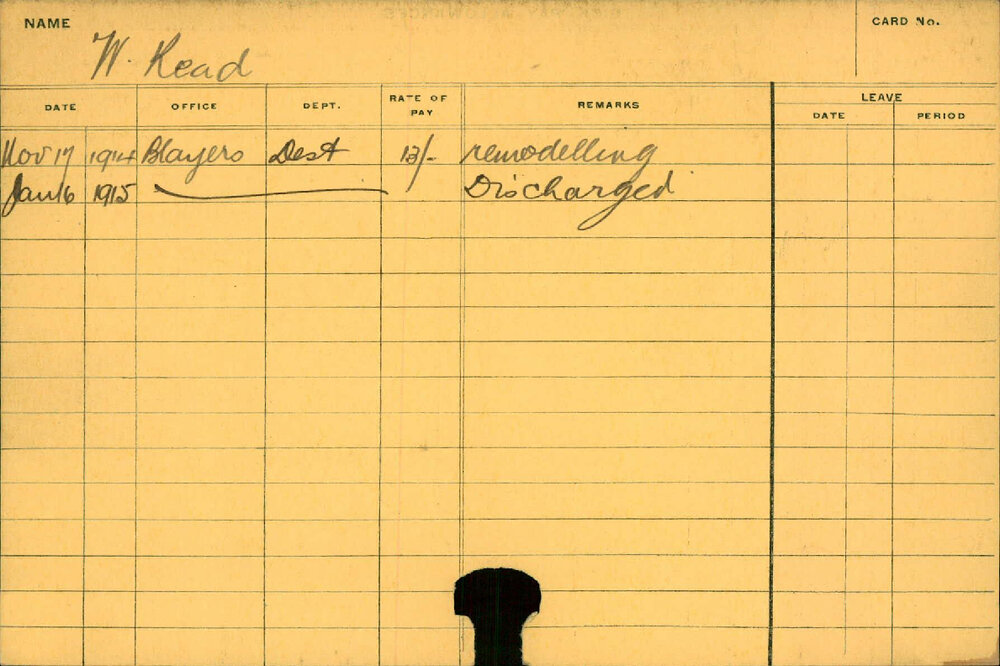 NAME
W. Read
CARD No.
DATE OFFICE DEPT. RATE OF PAY REMARKS LEAVE
DATE PERIOD
Nov 17 1914 Blayers Dest 13/- remodelling
Jan 16 1915 Discharged